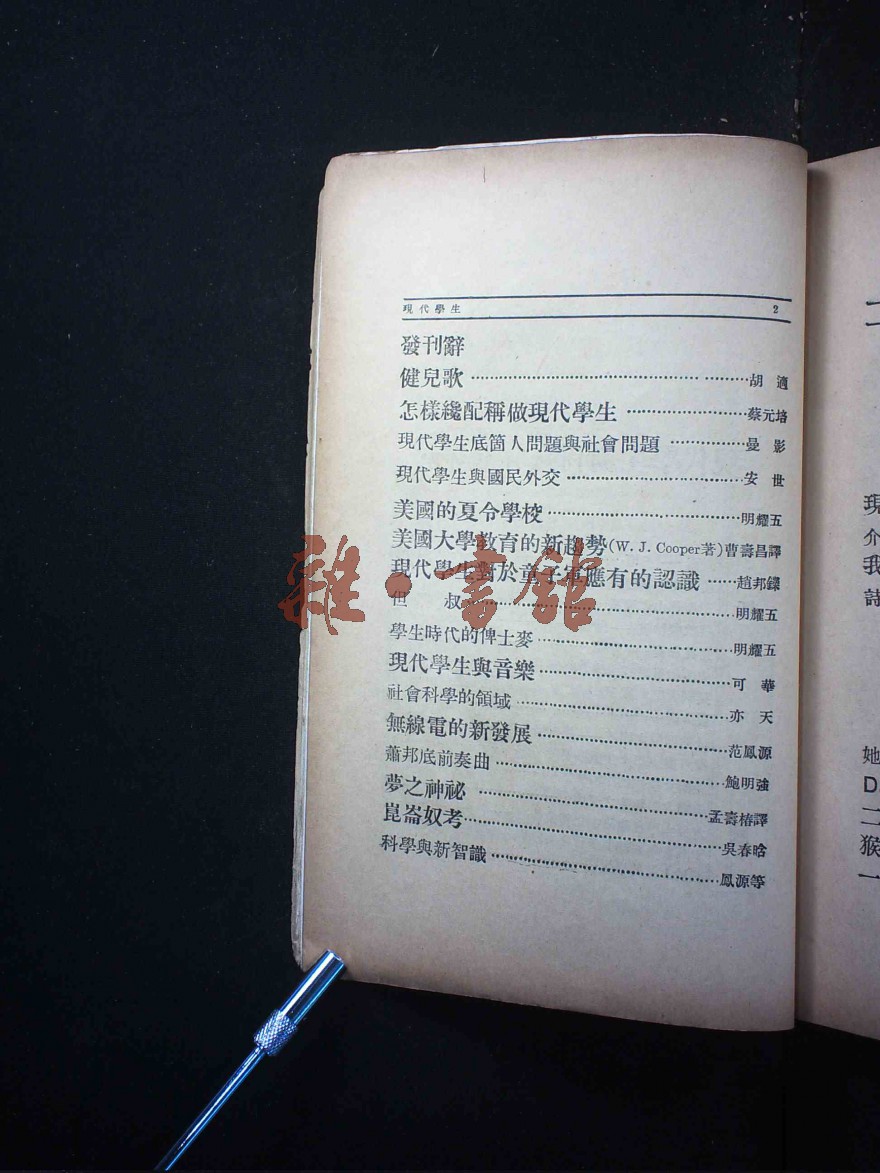 現代學生 2
發刊辭
健兒歌……胡適
怎樣纔配稱做現代學生……蔡元培
現代學生底箇人問題與社會問題……曼影
現代學生與國民外交……安世
美國的夏令學校……明耀五
美國大學教育的新趨勢(W. J. Cooper著)曹壽昌譯
現代學生對於童子軍應有的認識……趙邦鑅
但叔……明耀五
學生時代的俾士麥……明耀五
現代學生與音樂……可華
社會科學的領域……亦天
無線電的新發展……范鳳源
蕭邦底前奏曲……鮑明強
夢之神祕……孟壽椿譯
崑崙奴考……吳春晗
科學與新智識……鳳源等
雜·書館
現
介
我
詩
她
D
二
猴
一